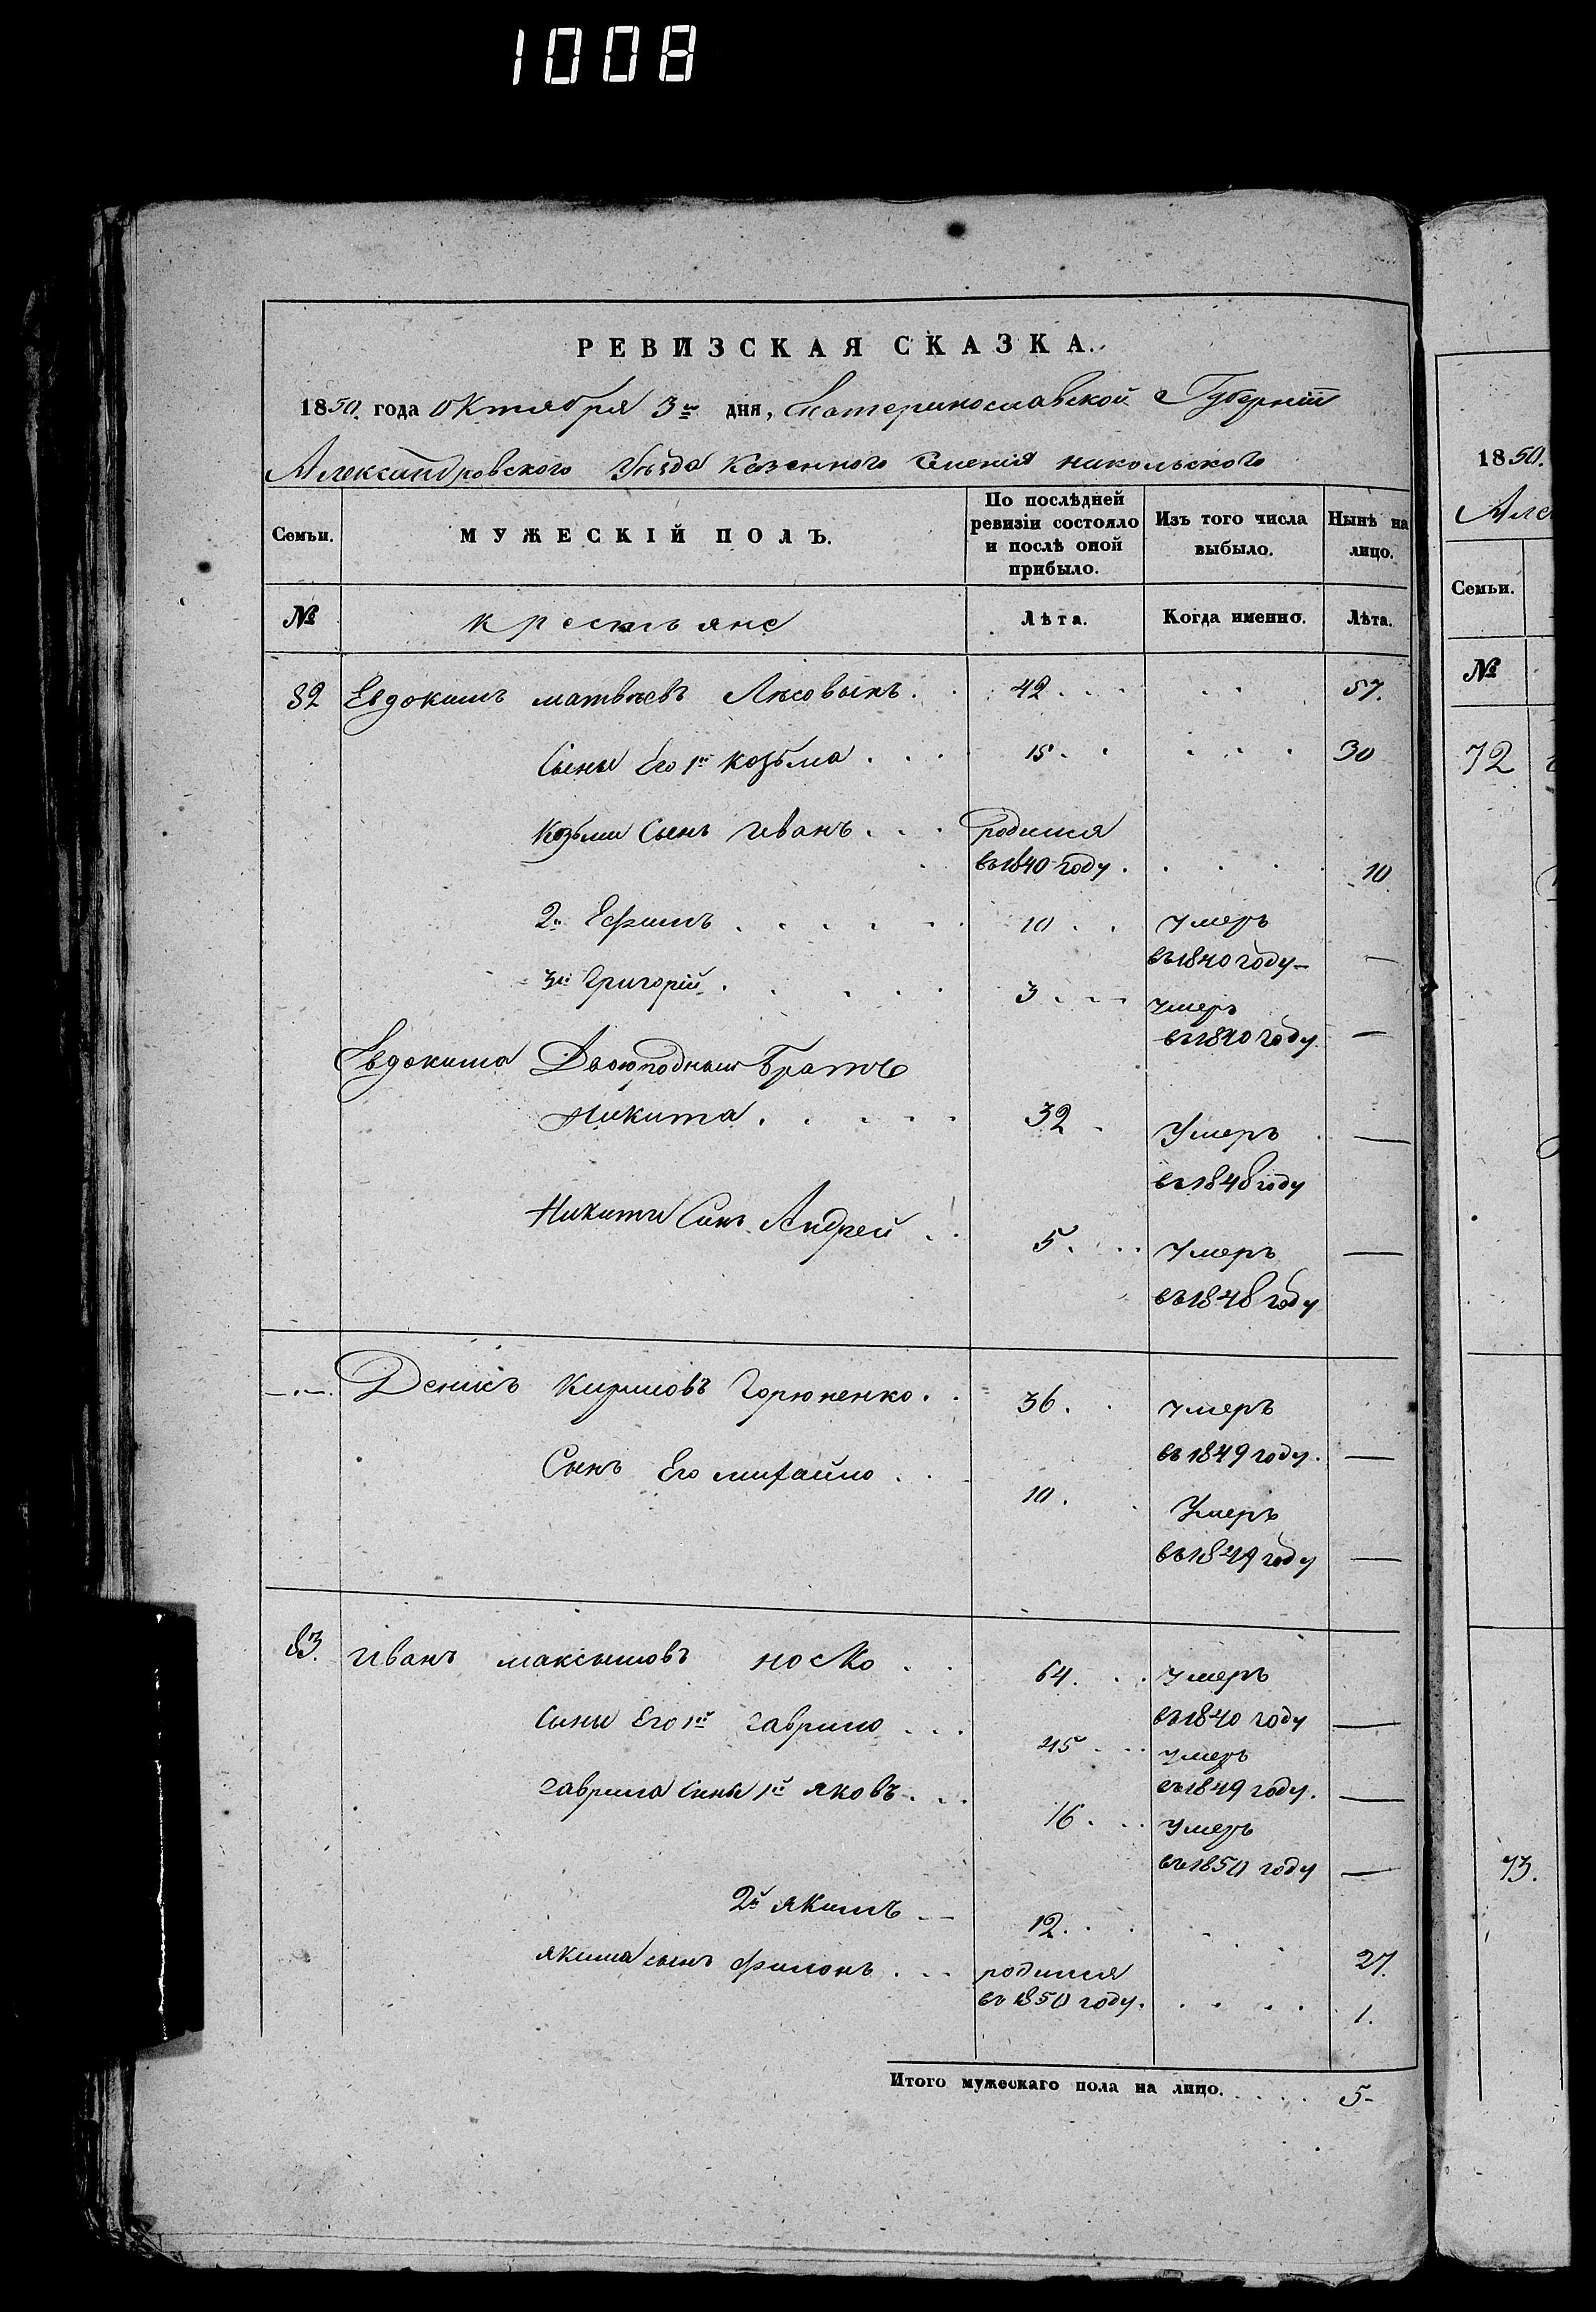 1008
РЕВИЗСКАЯ СКАЗКА.
1850. года Октября 3го дня, Екатеринославской Губернiи
Александровского Уѣзда Казенного Селенiя Никольского
Семьи. МУЖЕСКІЙ ПОЛЪ. По послѣдней ревизіи состояло и послѣ оной прибыло. Изъ того числа выбыло. Нынѣ на лицо.
№ Крестьяне Лѣта. Когда именно. Лѣта.
82 Евдокимъ матвѣевъ Лысовыкъ. 42 57.
Сыны Его 1й козьма 15 30
Козьми Сынъ иванъ родился
въ 1840 году 10
2й Ефимъ 10 умеръ
въ 1840 году —
3й Григорій 3 умеръ
въ 1840 году —
Евдокима Двоюродный Братъ
Никита 32 Умеръ —
въ 1848 году
Никиты Синъ Андрей 5 Умеръ —
въ 1848 году
—.— Денисъ Кириловъ Горюненко 36. умеръ
въ 1849 году. —
Сынъ Его михайло 10. Умеръ
въ 1849 году —
83. иванъ максимовъ носко 64. умеръ
въ 1840 году —
Сыны Его 1й гаврило 45 умеръ
въ 1849 году. —
гаврила Сины 1й яковъ 16 умеръ
въ 1850 году —
2й якимъ 12. 27.
якима сынъ филонъ родился
въ 1850 году. 1.
Итого мужескаго пола на лицо. 5-
1850.
Але
Семьи.
№
72
73.